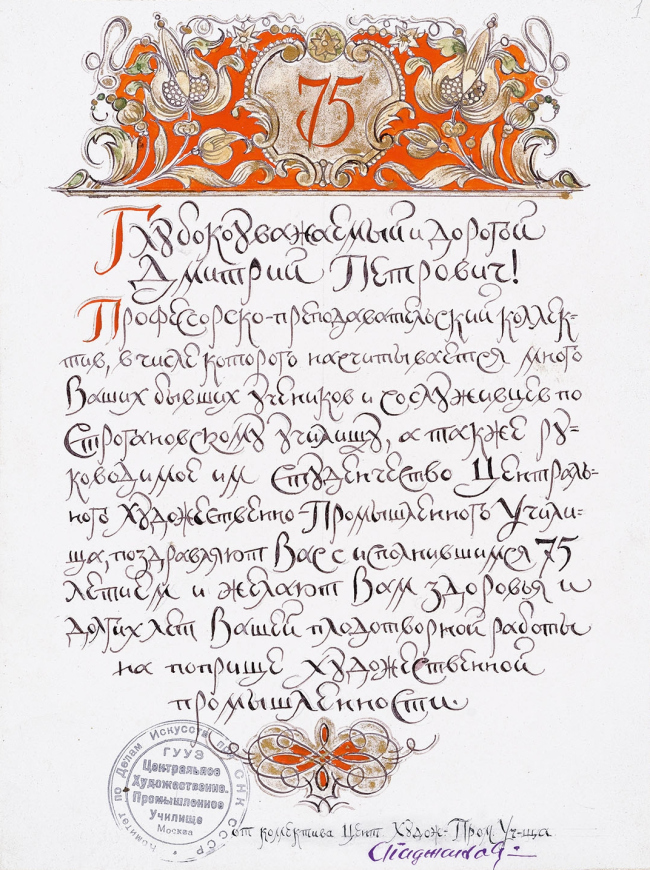 1
75
Глубокоуважаемый и дорогой
Дмитрий Петрович!
Профессорско-преподавательский коллек-
тив, в числе которого насчитывается много
Ваших бывших учеников и сослуживцев по
Строгановскому училищу, а также ру-
ководимое им студенчество Централь-
ного Художественно-Промышленного Учили-
ща, поздравляют Вас с исполнившимся 75
летием и желают Вам здоровья и
долгих лет Вашей плодотворной работы
на поприще художественной
промышленности.
Комитет по Делам Искусств при СНК СССР
ГУУЗ
Центральное
Художественно-
Промышленное
Училище
Москва
от коллектива Цент. Худож-Пром. Уч-ща